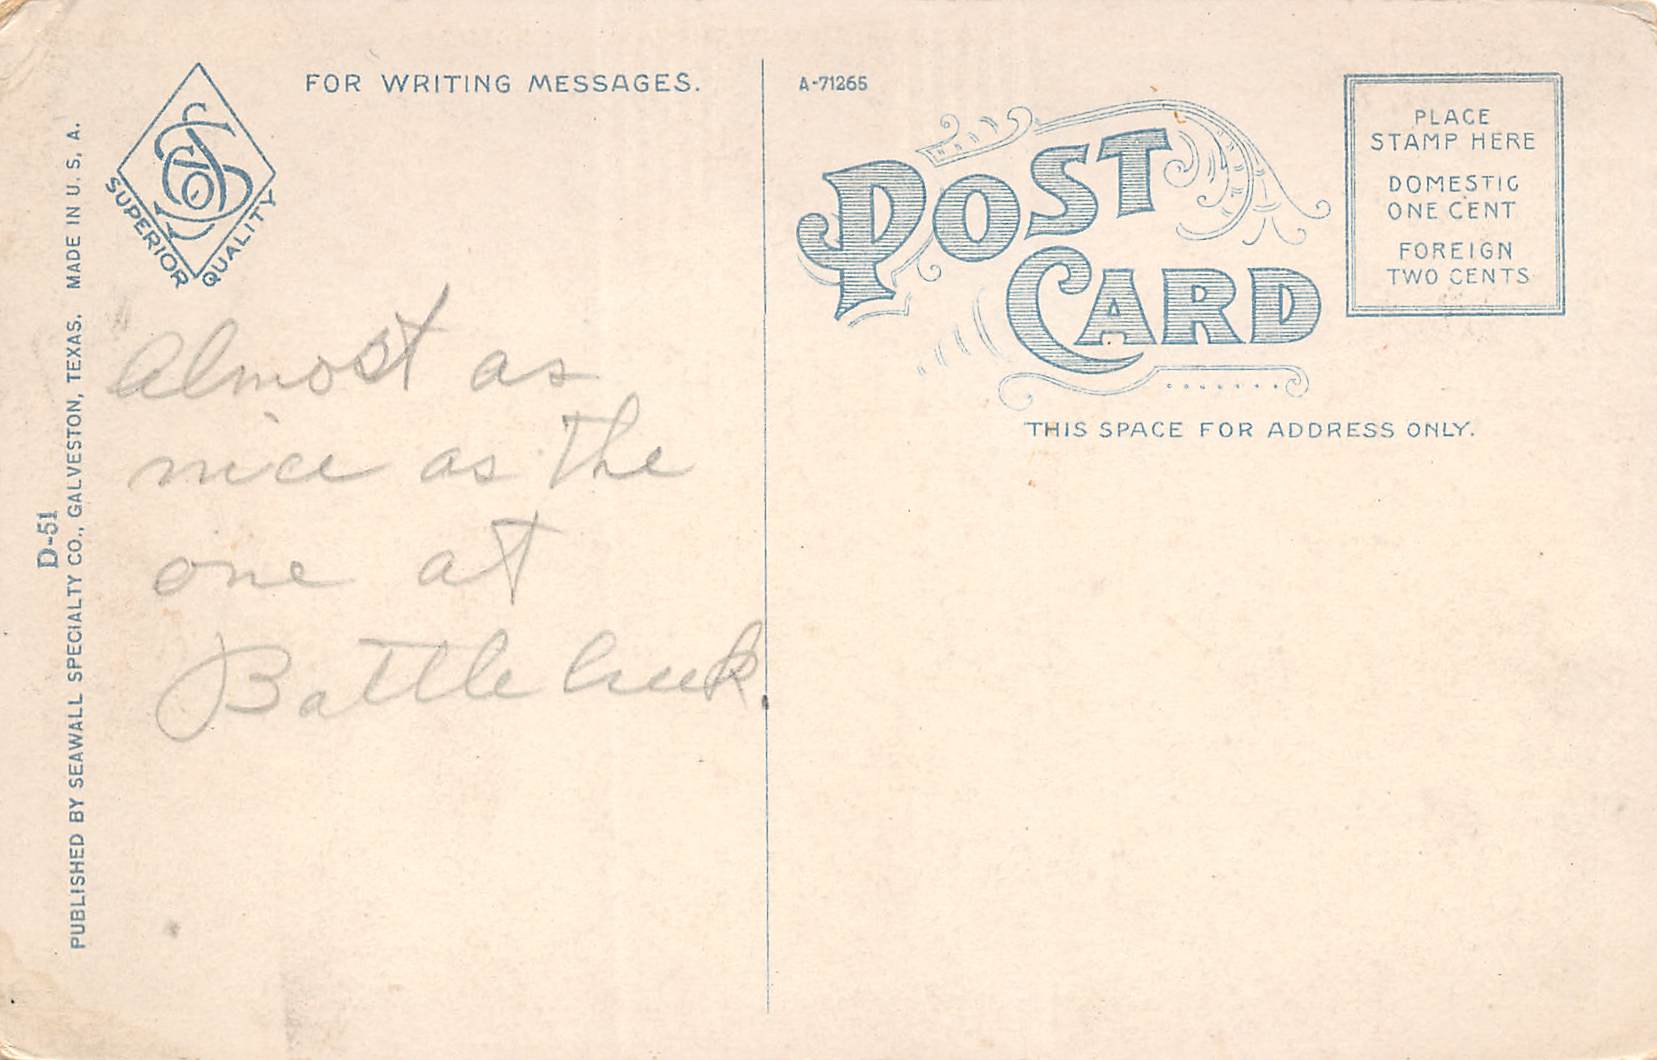 FOR WRITING MESSAGES.
SUPERIOR QUALITY
D-51
PUBLISHED BY SEAWALL SPECIALTY CO., GALVESTON, TEXAS. MADE IN U. S. A.
Almost as
nice as the
one at
Battle Creek.
A-71265
POST
CARD
PLACE
STAMP HERE
DOMESTIC
ONE CENT
FOREIGN
TWO CENTS
THIS SPACE FOR ADDRESS ONLY.